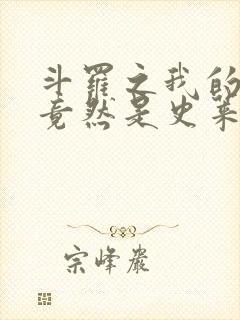 斗罗之我的
竟然是史莱
宗峰岩